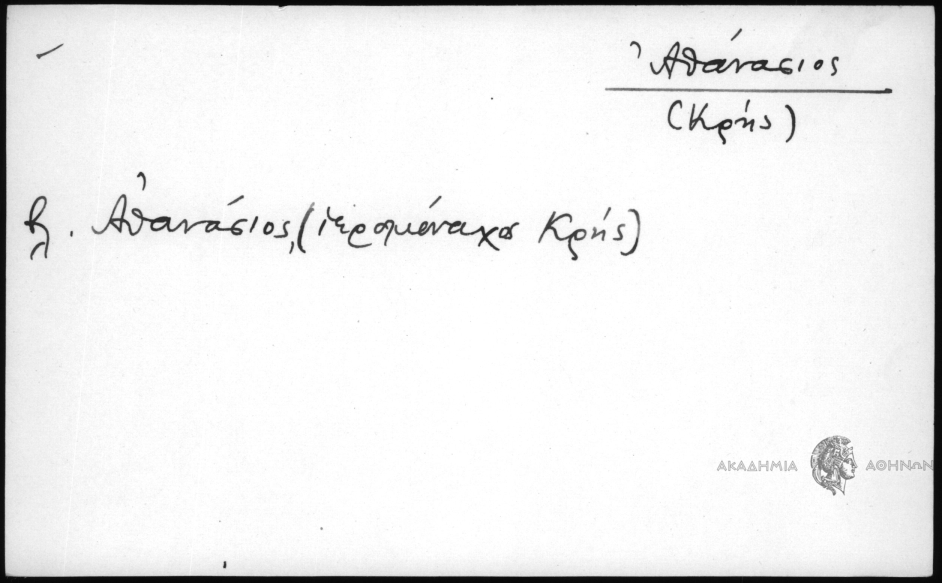 Ἀθάνασιος
(Κρής)
βλ. Ἀθανάσιος, (ἱερομόναχος Κρής)
ΑΚΑΔΗΜΙΑ ΑΘΗΝΩΝ